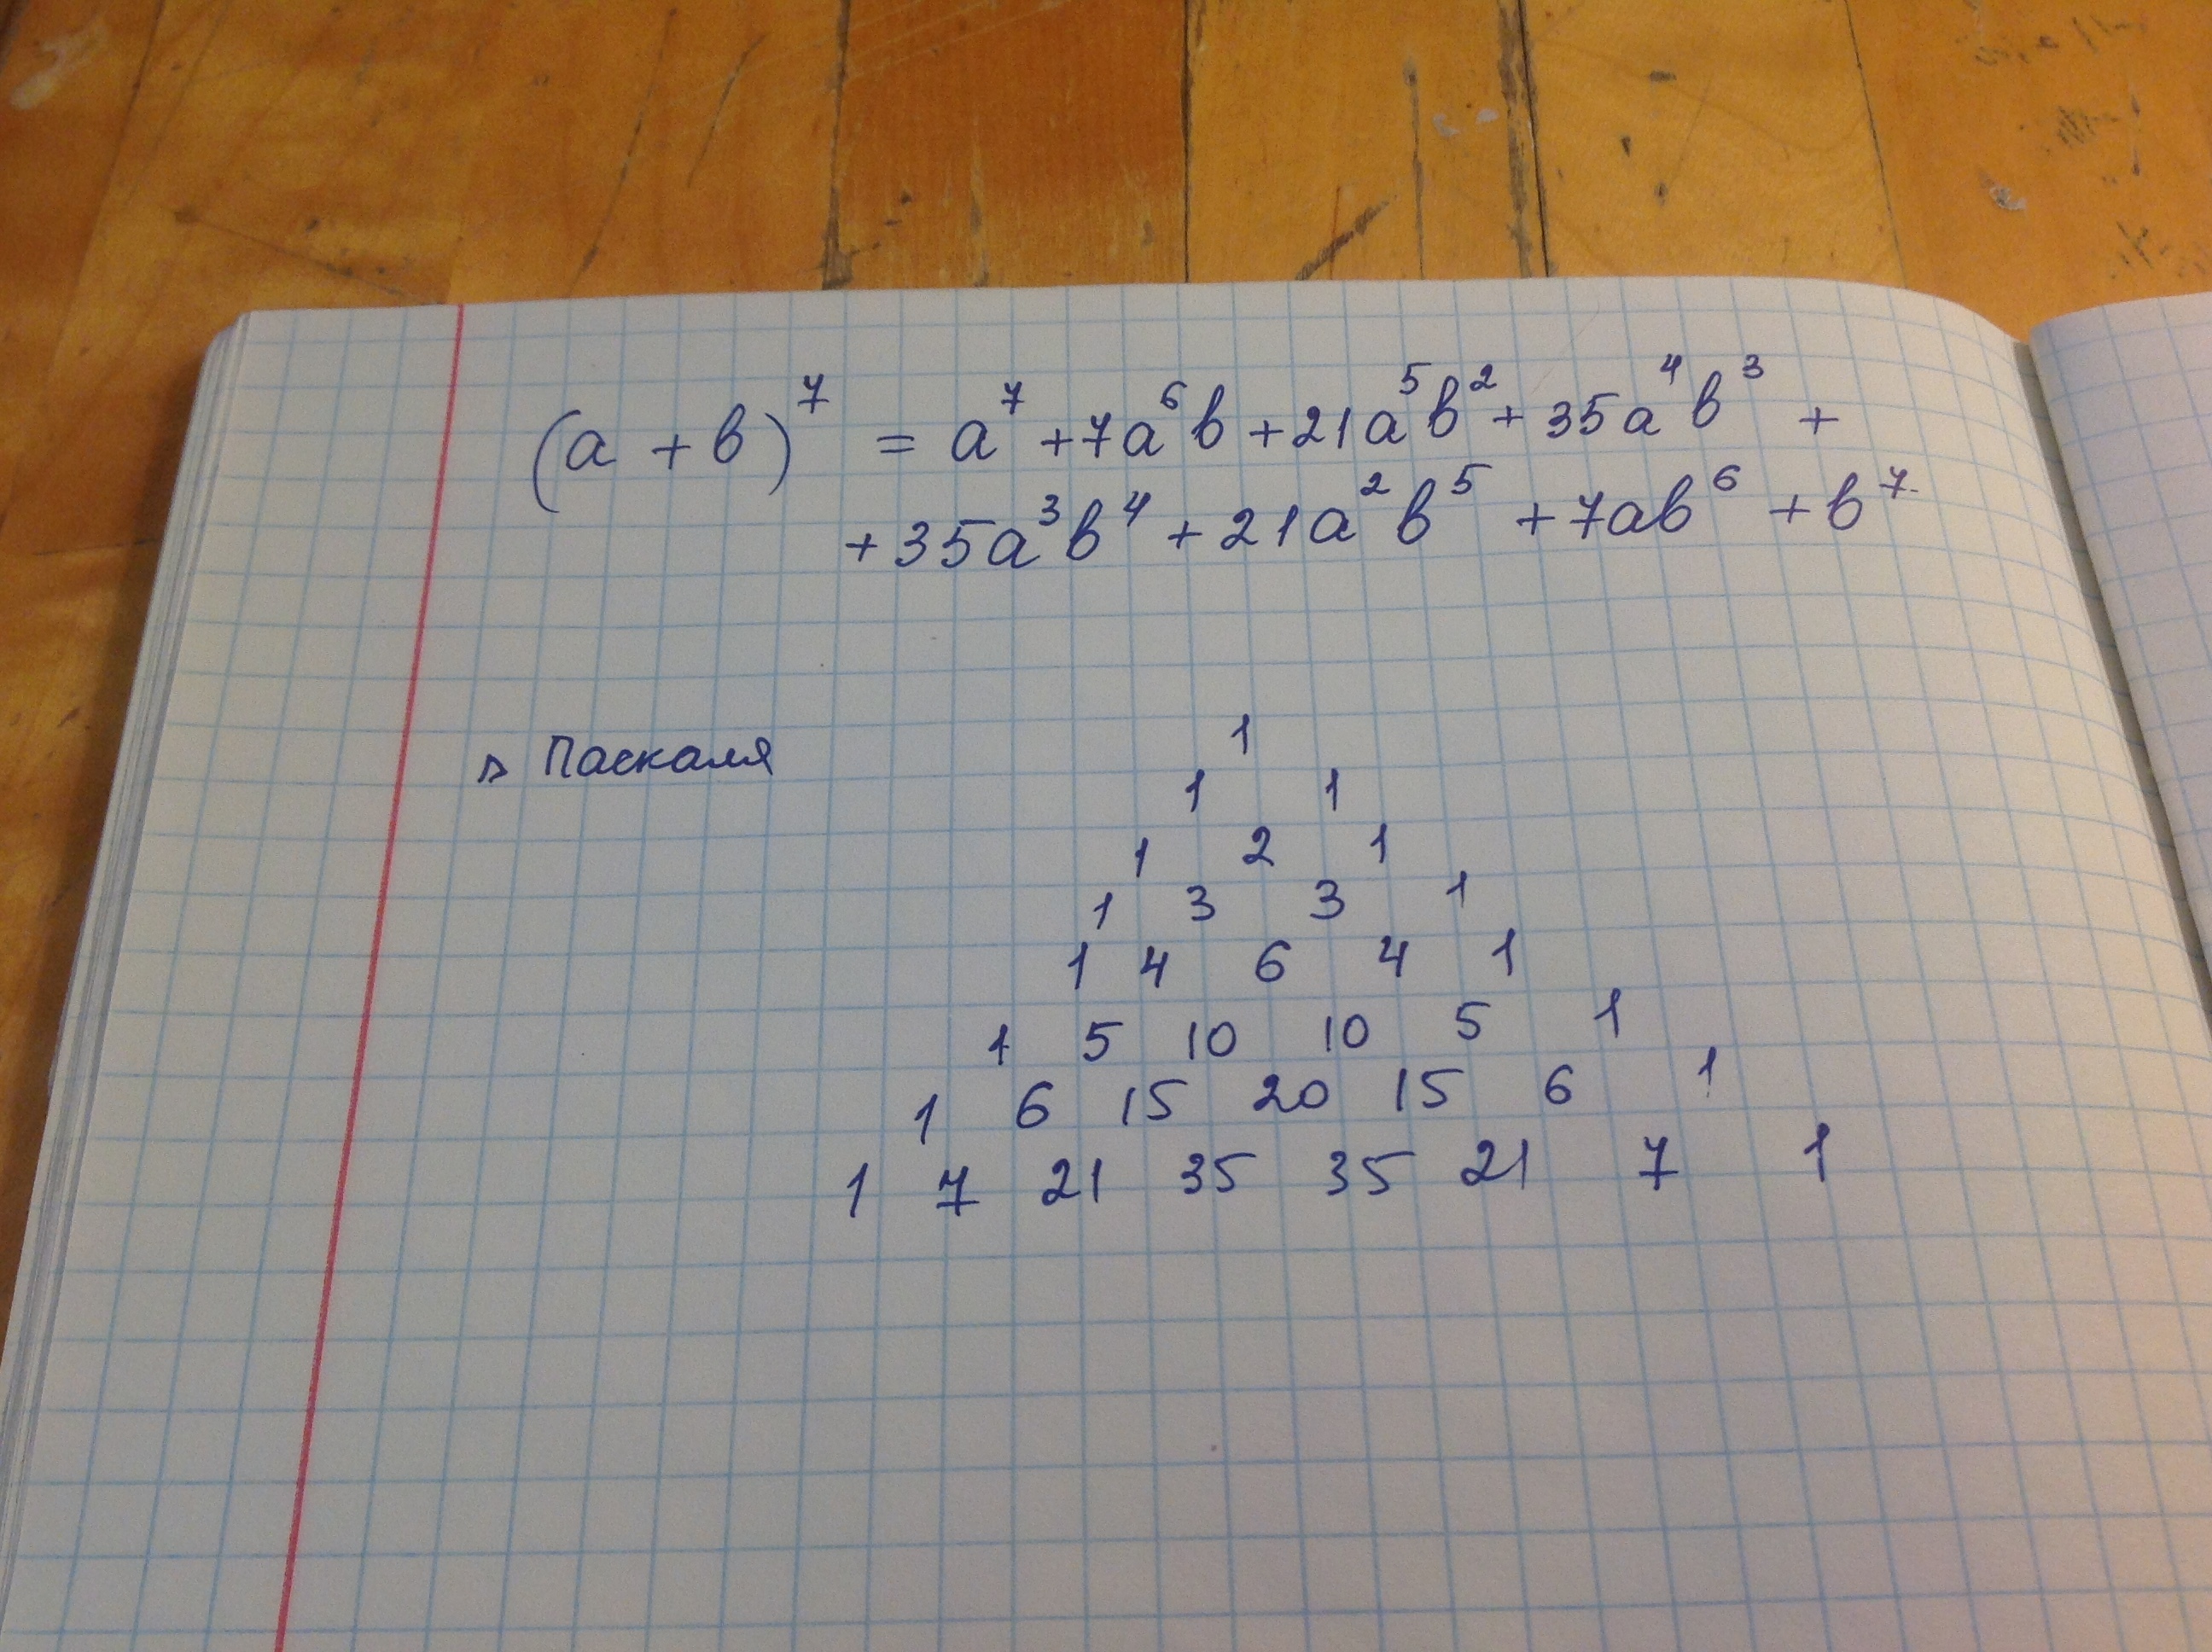 (a + b)⁷ = a⁷ + 7a⁶b + 21a⁵b² + 35a⁴b³ +
+ 35a³b⁴ + 21a²b⁵ + 7ab⁶ + b⁷
▷ Паскаля
1
1 1
1 2 1
1 3 3 1
1 4 6 4 1
1 5 10 10 5 1
1 6 15 20 15 6 1
1 7 21 35 35 21 7 1